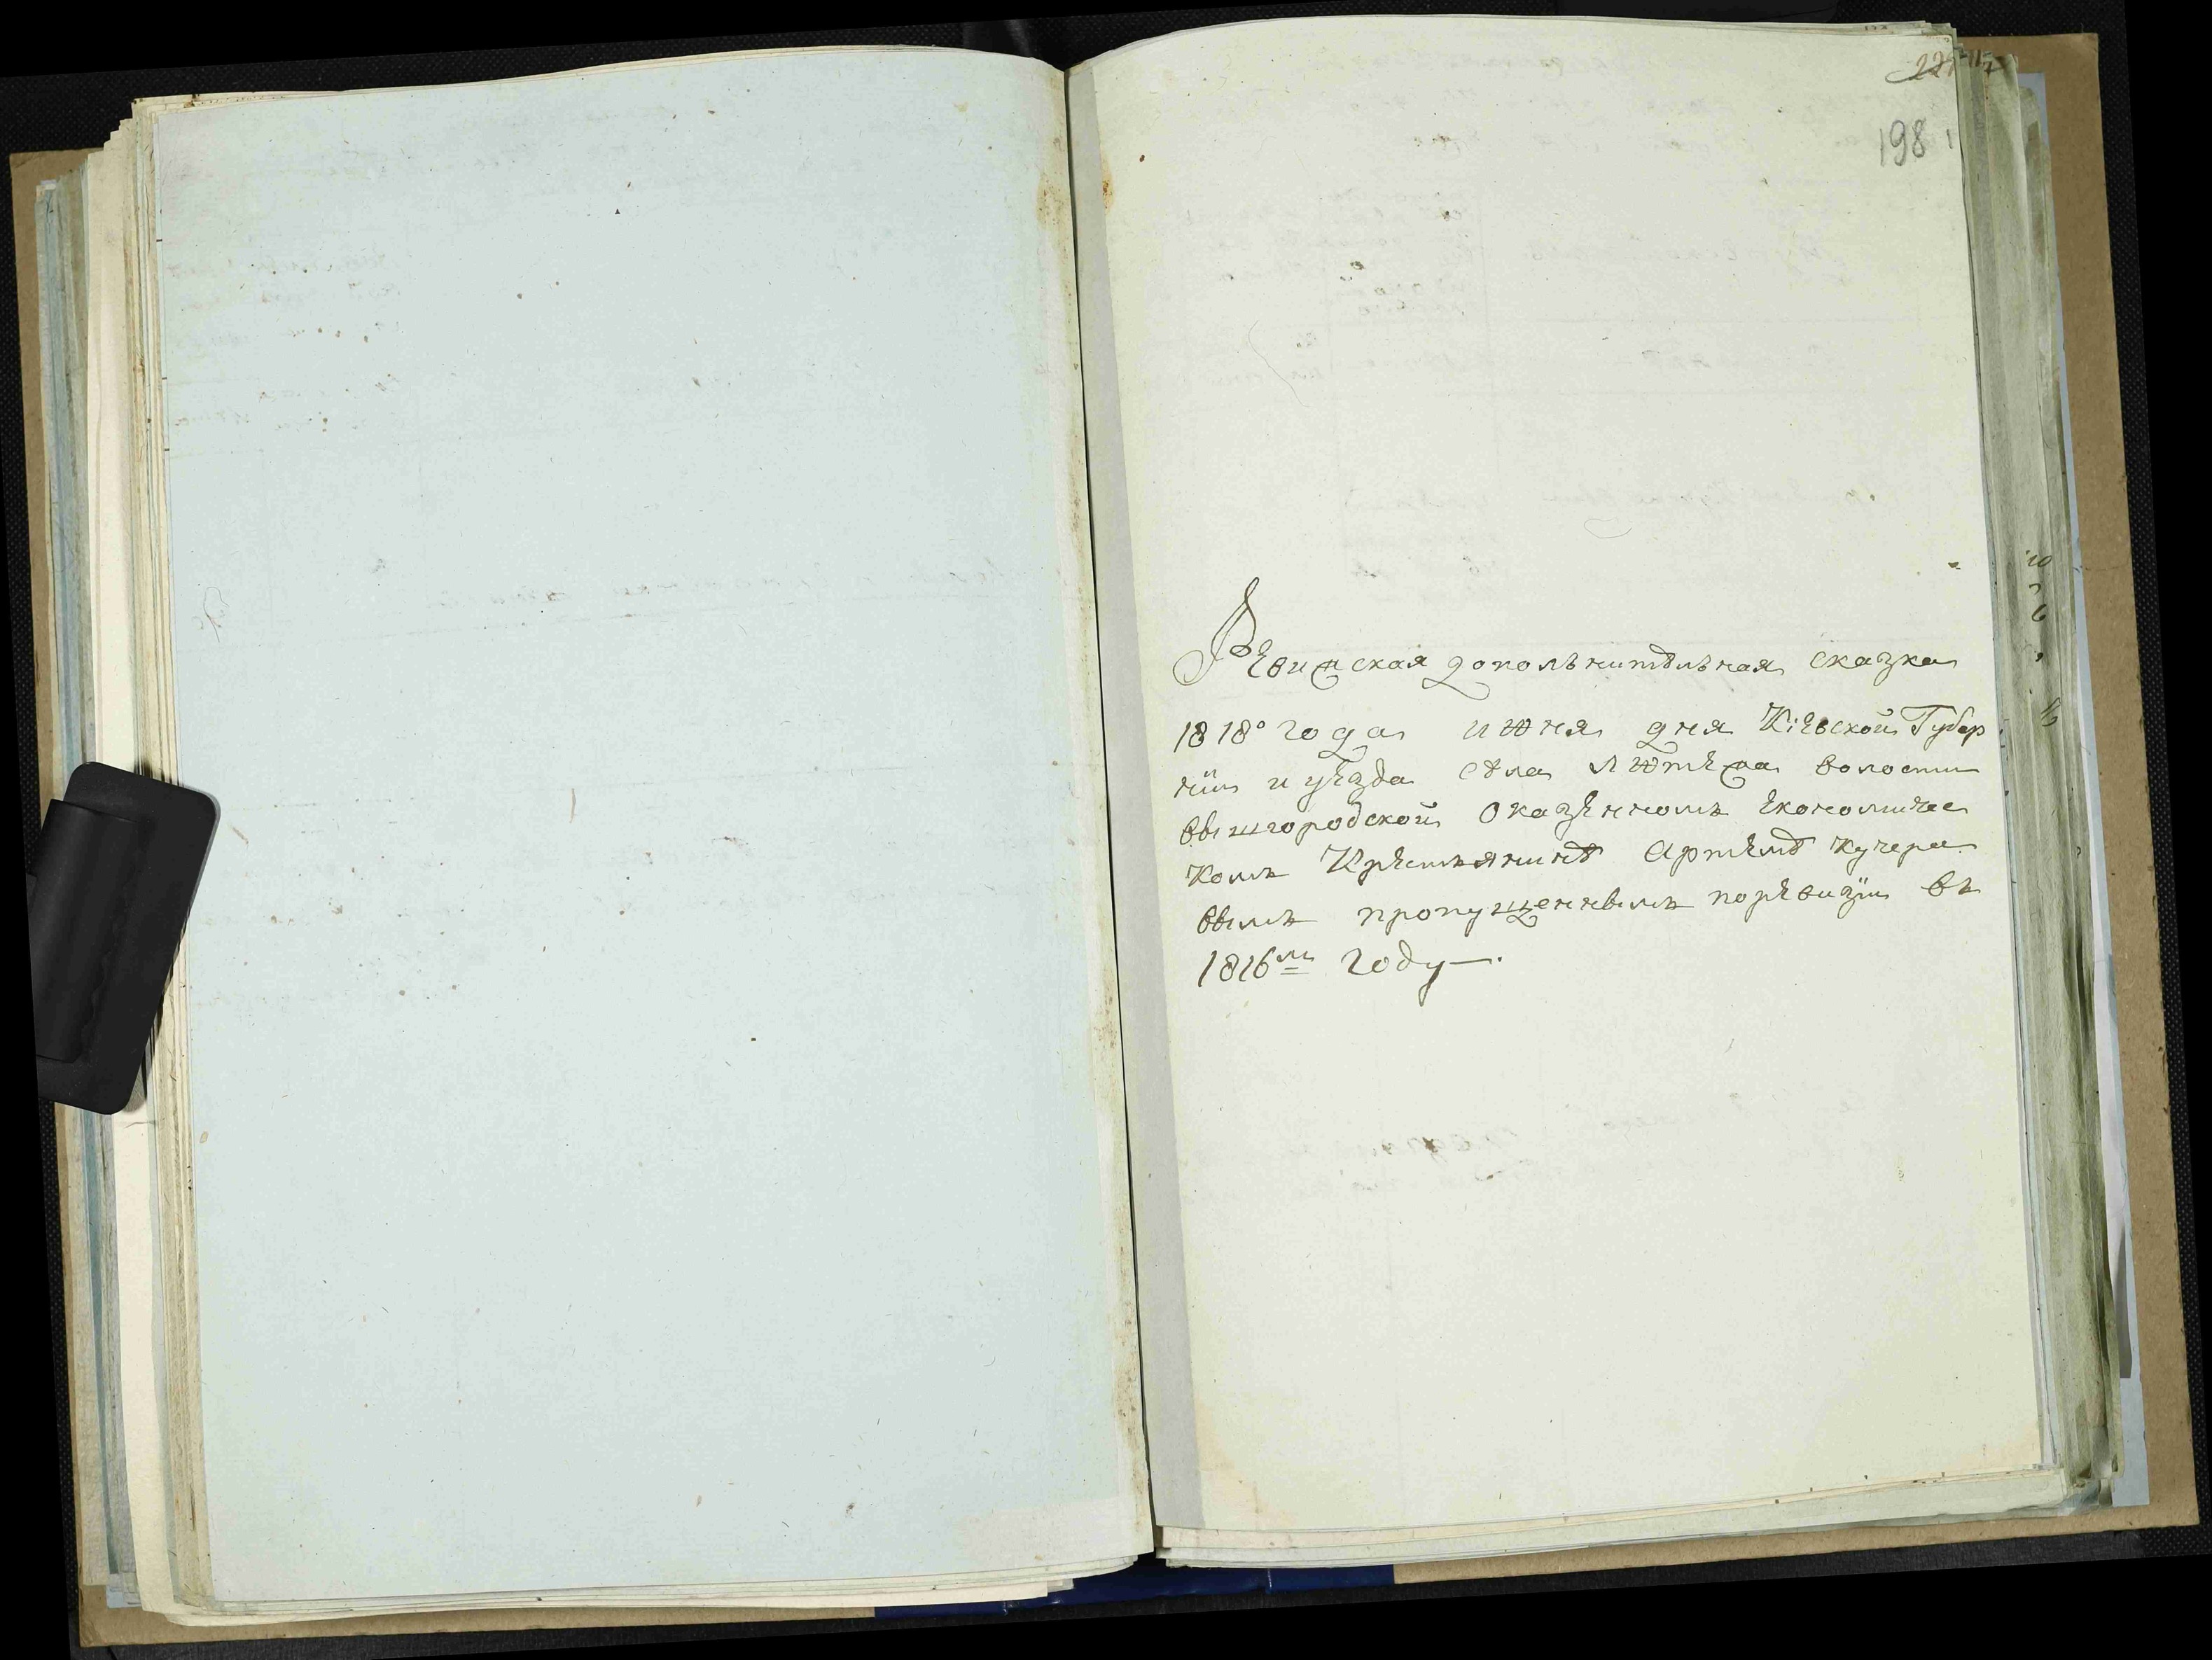 198
Ревижская дополънителъная сказка
1818° года июня дня Кіевской Губер
ніи и уѣзда села Лютежа волости
вышгородской оказенномъ Економичес
комъ Крестьянинѣ Артемѣ Кучеря
вымъ пропущеннымъ поревизіи въ
1816мъ году —.